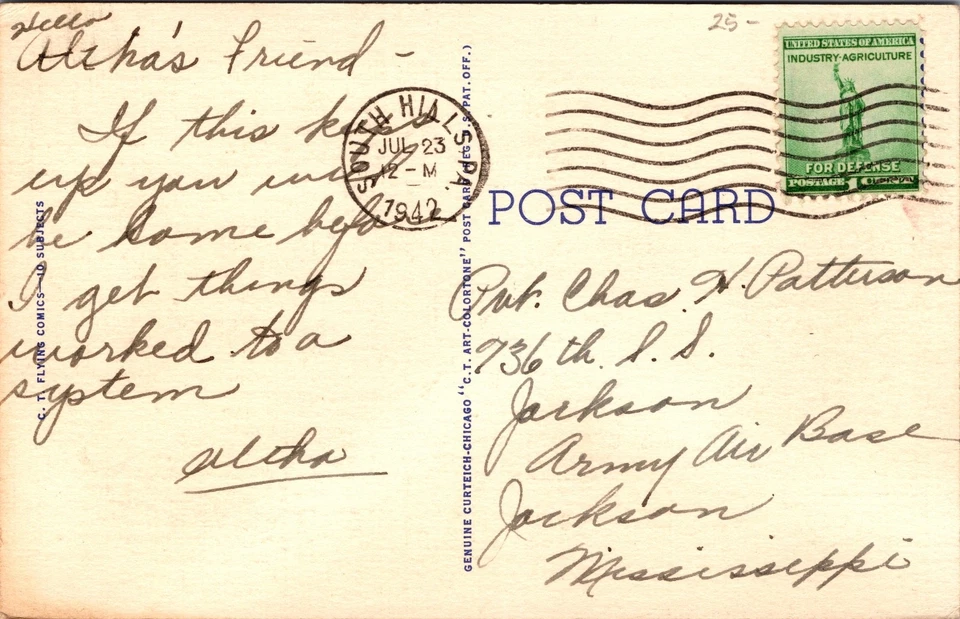 Hello
Altha's Friend -
If this keeps
up you will
be home before
I get things
worked to a
system
Altha
C. T. FLYING COMICS—10 SUBJECTS
GENUINE CURTEICH-CHICAGO "C.T. ART-COLORTONE" POST CARD (REG. U.S. PAT. OFF.)
SOUTH HILLS PA.
JUL 23
12-M
1942
25-
UNITED STATES OF AMERICA
INDUSTRY-AGRICULTURE
FOR DEFENSE
POSTAGE 1 CENT
POST CARD
Pvt. Chas. H. Patterson
736th. S. S.
Jackson
Army Air Base
Jackson
Mississippi